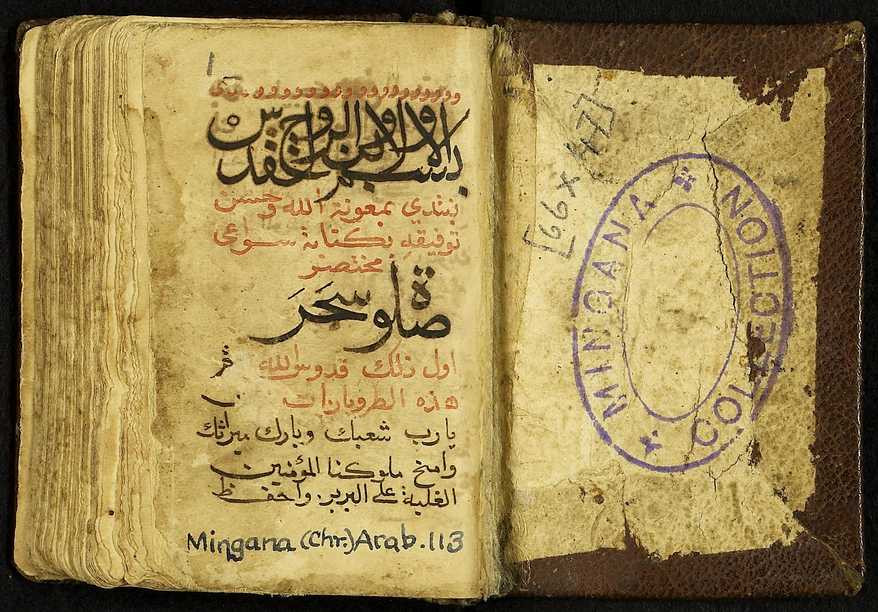 1
بسم الاب والابن والروح القدس
نبتدي بمعونة الله وحسن
توفيقه بكتابة سواعي
مختصر
صلوة سحر
اول ذلك قدوس الله
هذه الطروبارات
يا رب شعبك وبارك ميراثك
وامنح ملوكنا المؤمنين
الغلبة على البربر. واحفظ
Mingana (Chr.) Arab. 113
[66 x 47]
MINGANA COLLECTION